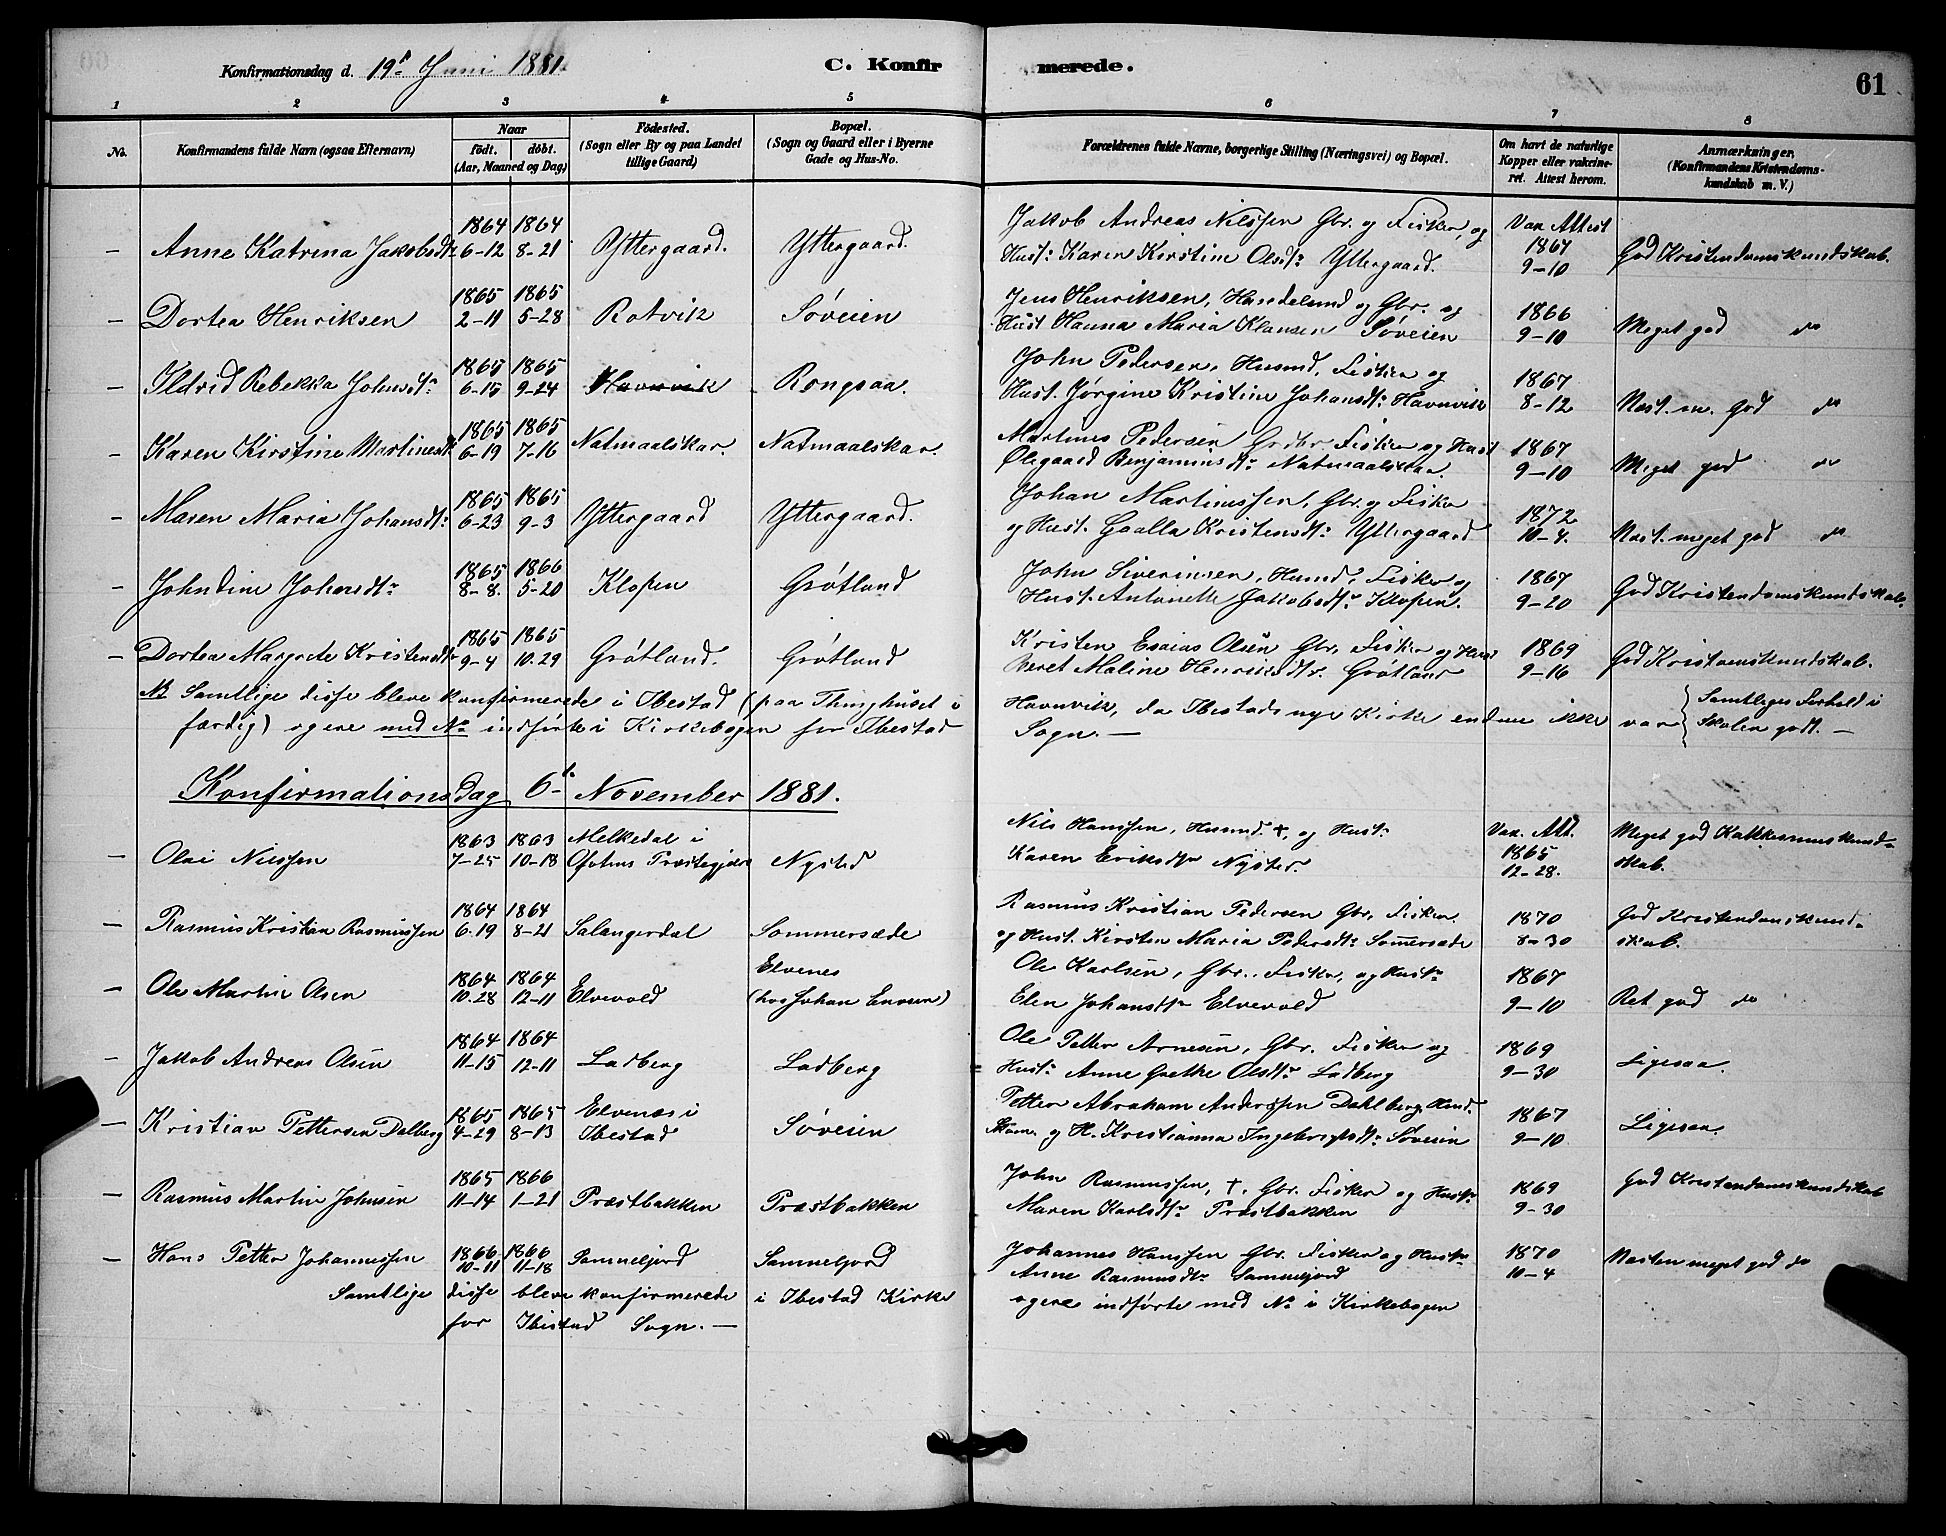 Konfirmationsdag d. 19de Juni 1881.
C. Konfir
merede.
61
1 2 3 4 5 6 7 8
No.
Konfirmandens fulde Navn (ogsaa Efternavn)
Naar
födt. döbt.
(Aar, Maaned og Dag)
Födested.
(Sogn eller By og paa Landet
tillige Gaard)
Bopæl.
(Sogn og Gaard eller i Byerne
Gade og Hus-No.
Forældrenes fulde Navne, borgerlige Stilling (Næringsvei) og Bopæl.
Om havt de naturlige
Kopper eller vakcine-
ret. Attest herom.
Anmærkninger,
(Konfirmandens Kristendoms-
kundskab m. V.)
1864 1864 Jakob Andreas Nilssen Gbr. og Fisker, og Vax. Attest
– Anne Katrina Jakobsdtr 6-12 8-21 Yttergaard. Yttergaard. Hust: Karen Kirstine Olsdtr Yttergaard. 1867 9–10 God Kristendomskundskab.
1865 1865 Jens Henriksen, Handelsmd og Gbr. og 1866
– Dortea Henriksen 2-11 5-28 Rotvik Søveien Hust Hanna Maria Klausen Søveien 9–10 Meget god do
1865 1865 John Pedersen, Husmd, Fisker og 1867
– Ildrid Rebekka Johnsdtr 6-15 9-24 Havnvik Rongsaa. Hust. Jørgine Kristine Johansdtr Havnvik 8-12 Næst. m. God do
1865 1865 Martines Pedersen Gbr Fisker og Hust 1867
– Karen Kirstine Martinesdtr 6-19 7-16 Natmaalskar. Natmaalskar. Ølegaard Benjaminsdtr Natmaalskar 9–10 Meget god do
1865 1865 Johan Martinessen, Gbr. og Fisker 1872
– Maren Maria Johansdtr 6-23 9-3 Yttergaard Yttergaard. og Hust. Gaalla Kristensdtr Yttergaard 10-4. Næst. meget god do
1865 1866 John Siverinsen, Husmd, Fisker og 1867
– Johndine Johnsdtr 8-8. 5-20 Klopen Grøtland Hust. Antonette Jakobsdtr Klopen. 9–20 God Kristendomskundskab.
1865 1865 Kristen Esaias Olsen Gbr. Fisker og Hust 1869
– Dortea Margrete Kristensdtr 9-4 10.29 Grøtland. Grøtland Beret Maline Henriksdtr. Grøtland 9–16 God Kristomskundskab.
NB Samtlige disse bleve konfirmerede i Ibestad (paa Thinghuset i Havnvik, da Ibestads nye Kirke endnu ikke var
færdig) og ere med No indførte i Kirkebogen for Ibestad Sogn. —
Samtliges Forhold i
Skolen godt. —
Konfirmations Dag 6te November 1881.
1863 1863 Melkedal i Nils Hanssen, Husmd. †, og Hust: Vax. Att. Meget god Kattkesmuskund-
– Olai Nilssen 7-25 10-18 Ofotens Præstegjæld Nysted Karen Eriksdtr Nysted. 1865 12-28. skab.
1864 1864 Rasmus Kristian Pedersen Gbr, Fisker. 1870 God Kristendomskund-
– Rasmus Kristian Rasmussen 6.19 8-21 Salangerdal Sommersæde og Hust. Kirsten Maria Pedersdtr Sommersæde 8-30 skab.
1864 1864 Elvenes Ole Karlsen, Gbr., Fisker, og Hustr 1867
– Ole Martin Olsen 10.28 12-11 Elvevold (hos Johan Ensen) Elen Johansdtr Elvevold 9–10 Ret god do
1864 1864 Ole Petter Arnesen, Gbr. Fisker og 1869
– Jakob Andreas Olsen 11-15 12-11 Ladberg Ladberg Hust: Anne Grethe Olsdtr Ladberg 9–30 Ligesaa.
1865 1865 Elvenæs i Petter Abraham Andersen Dahlberg, Husmd. 1867
– Kristian Pettersen Dalberg 4-29 8-13 Ibestad Søveien og H. Kristianna Ingebrigtsdtr Søveien 9–10 Ligesaa.
1865 1866 John Rasmussen, †. Gbr. Fisker og Hustr 1869 God Kristendomskundskab
– Rasmus Martin Johnsen 11-14 1–21 Præstbakken Præstbakken Maren Karlsdtr Præstbakken 9-30
– Hans Petter Johannessen 1866 1866 Samuelfjord Samuelfjord Johannes Hanssen Gbr. Fisker og Hustr 1870 Næsten meget god do
10-11 11-18 Anne Rasmusdtr Samuelfjord 10-4
Samtlige disse bleve konfirmerede i Ibestad Kirke og ere indførte med No i Kirkebogen
for Ibestad Sogn. —